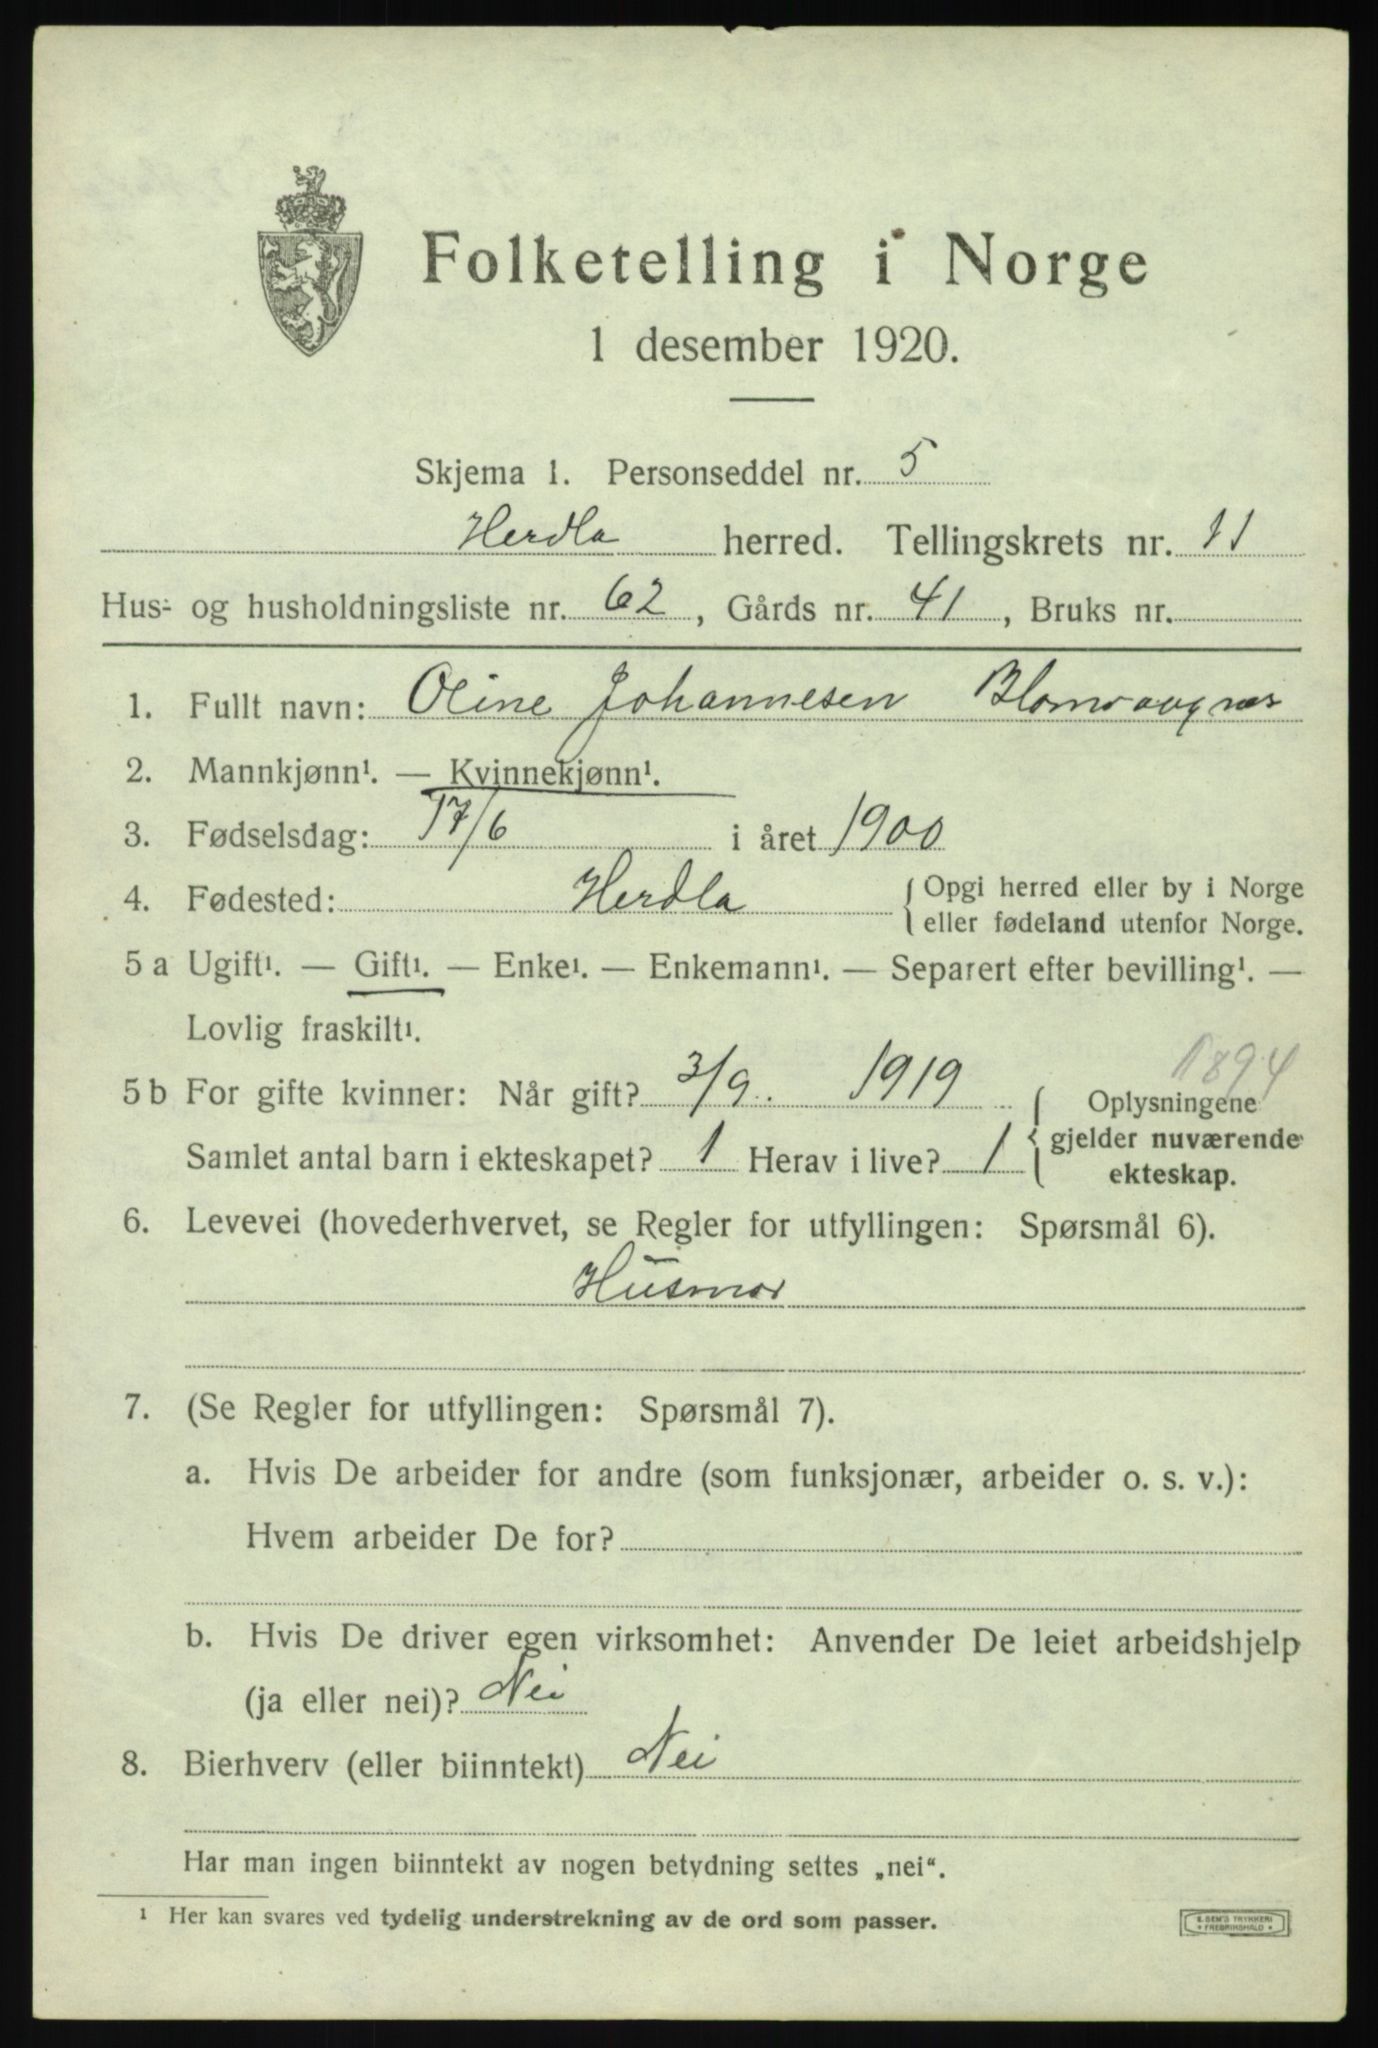 Folketelling i Norge
1 desember 1920.
Skjema 1. Personseddel nr. 5
Herdla herred. Tellingskrets nr. 11
Hus- og husholdningsliste nr. 62, Gårds nr. 41, Bruks nr.
1. Fullt navn: Oline Johannesen
2. Mannkjønn¹. — Kvinnekjønn¹.
3. Fødselsdag: 17/6 i året 1900
4. Fødested: Herdla { Opgi herred eller by i Norge
eller fødeland utenfor Norge.
5 a Ugift¹. — Gift¹. — Enke¹. — Enkemann¹. — Separert efter bevilling¹. —
Lovlig fraskilt¹.
1894
5 b For gifte kvinner: Når gift? 3/9. 1919 { Oplysningene
gjelder nuværende
Samlet antal barn i ekteskapet? 1 Herav i live? 1
ekteskap.
6. Levevei (hovederhvervet, se Regler for utfyllingen: Spørsmål 6).
Husmor
7. (Se Regler for utfyllingen: Spørsmål 7).
a. Hvis De arbeider for andre (som funksjonær, arbeider o. s. v.):
Hvem arbeider De for?
b. Hvis De driver egen virksomhet: Anvender De leiet arbeidshjelp
(ja eller nei)? Nei
8. Bierhverv (eller biinntekt) Nei
Har man ingen biinntekt av nogen betydning settes „nei“.
¹ Her kan svares ved tydelig understrekning av de ord som passer.
E. SEM'S TRYKKERI
* FREDRIKSHALD *